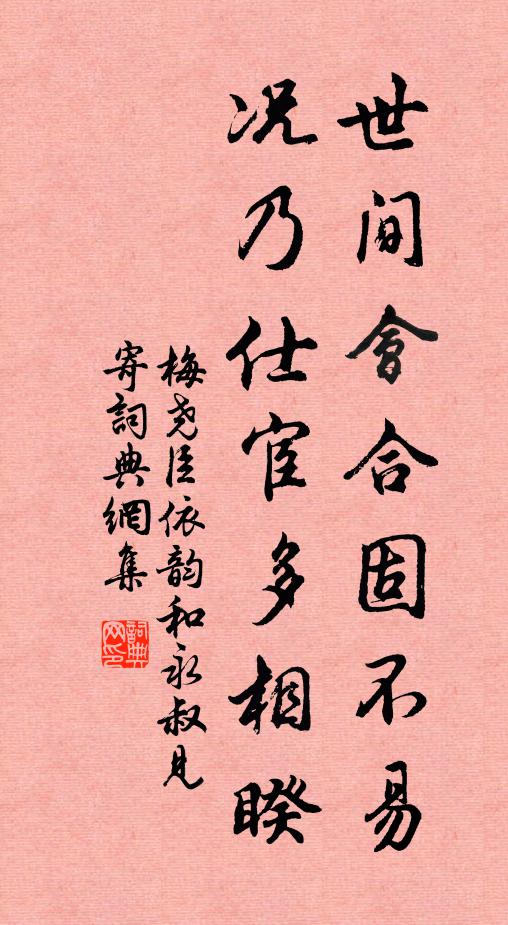 世間會合固不易
況乃仕宦多相睽
梅尧臣依韵和永叔見
寄詞典網集
詞典网印